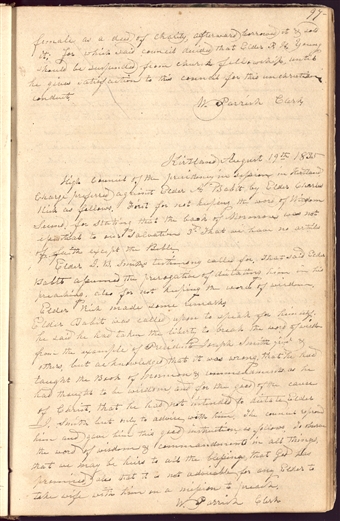 97
female as a deed of charity, afterward borrowed it & sold
it; for which said council decided that Elder R. R. Young
should be suspended from church fellowship, until
he gives satisfaction to this council for this unchristian
conduct
W. Parrish Clerk
Kirtland August 19th 1835
High Council of the presidency in session in Kirtland
Charge prefered against Elder A. Babit by Elder Charles
Rich as follows, First for not keeping the word of Wisdom
Secund, for stating that the Book of Mormons was not
essential to our Salvation 3d That we have no articles
of faith except the Bible
Elder J. B. Smiths testimony called for, that said Elder
Babit assumed the prerogative of dictating him in his
preaching, also for not keeping the word of wisdom,
Elder Rich made some remarks
Elder Babit was called upon to speak for himself,
he said he had taken the liberty to break the word of wisdom
from the example of President Joseph Smith jr &
others, but acknowledged that it was wrong, that he had
taught the Book of Mormon & commandments as he
had thought to be wisdom and for the good of the cause
of Christ, that he had not intended to dictate Elder
J. B. Smith but only to advise with him. The council reproved
him and gave him this good instruction as follows, To observe
the word of wisdom & commandments in all things,
that we may be heirs to all the blessings, that God has
promised, also that it is not advisable for any Elder to
take wife with them on a mission to preach
W. Parrish Clerk